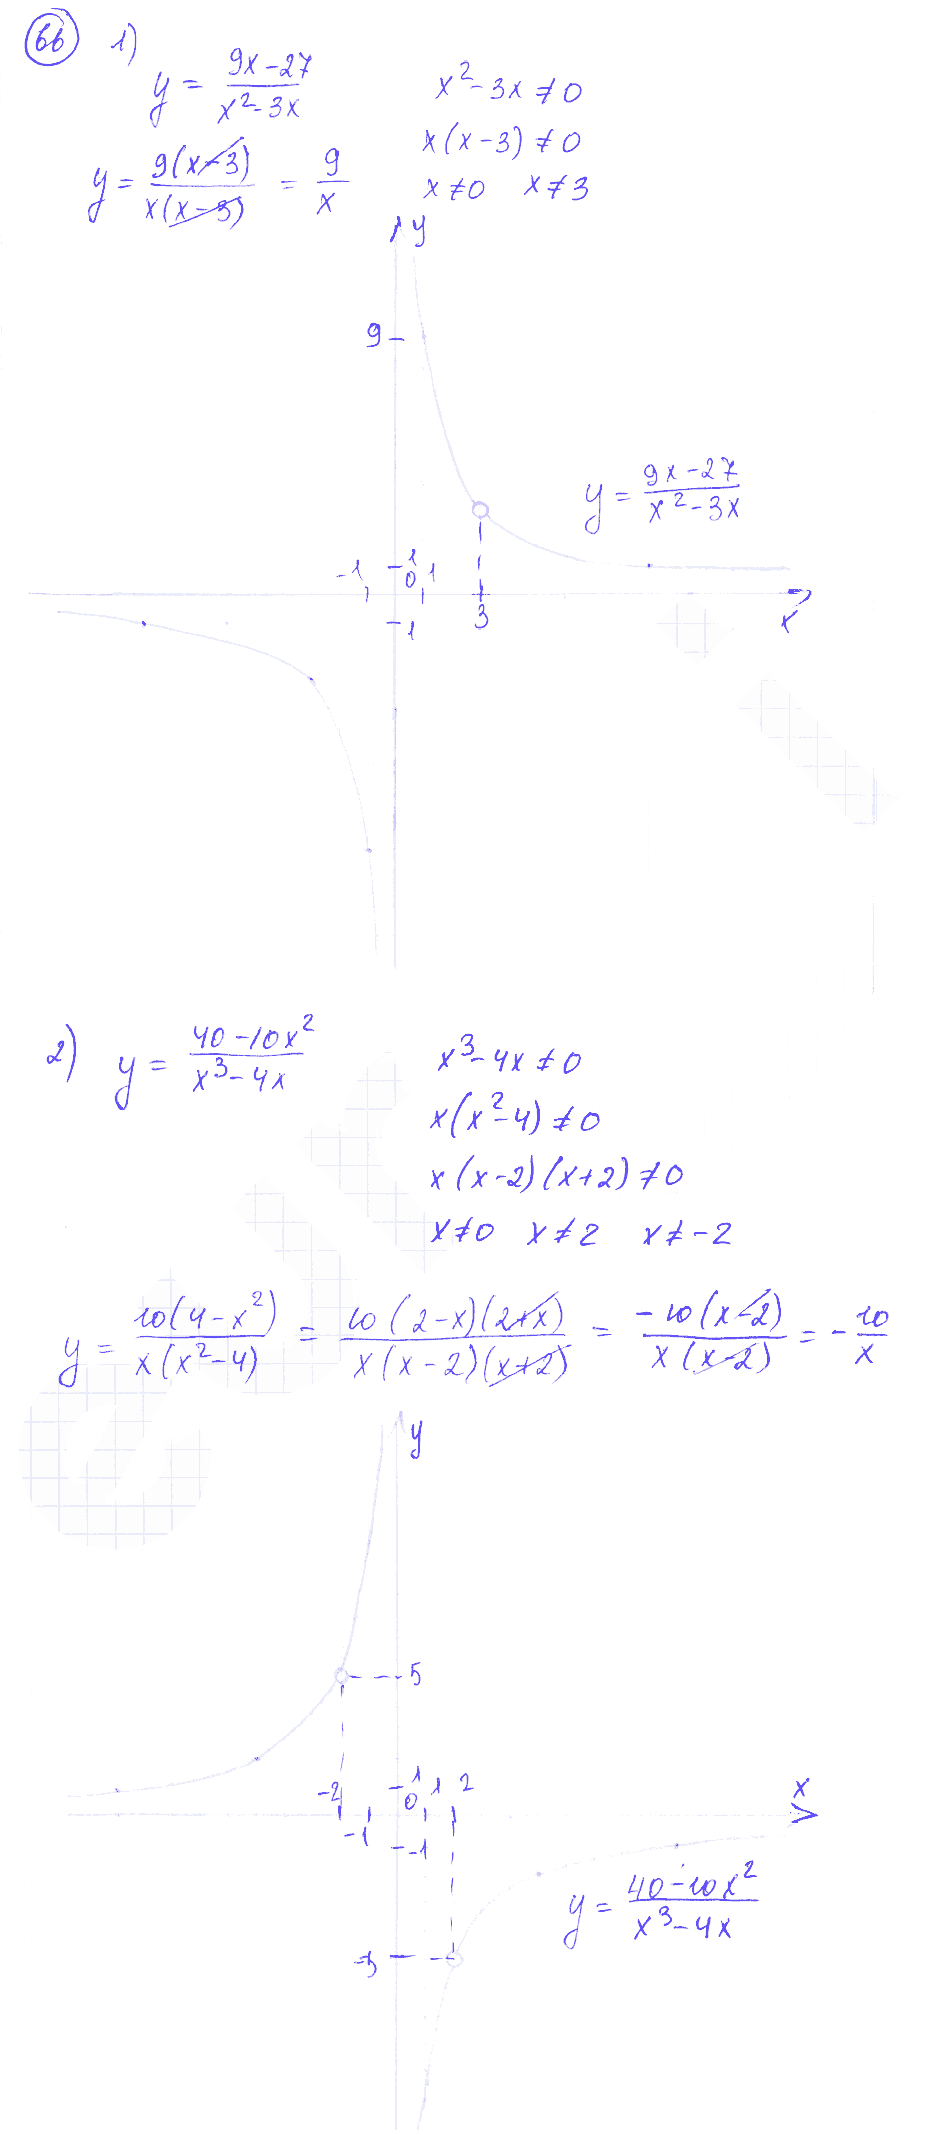 66 1)
y = (9x-27)/(x²-3x)    x²-3x≠0
x(x-3)≠0
y = 9(x-3)/(x(x-3)) = 9/x    x≠0 x≠3
y
9
y = (9x-27)/(x²-3x)
-1 1 0 1
3 x
1
2) y = (40-10x²)/(x³-4x)    x³-4x≠0
x(x²-4)≠0
x(x-2)(x+2)≠0
x≠0 x≠2 x≠-2
y = 10(4-x²)/(x(x²-4)) = 10(2-x)(2+x)/(x(x-2)(x+2)) = -10(x-2)/(x(x-2)) = -10/x
y
5
-2 1 0 1 2 x
-1 -1
y = (40-10x²)/(x³-4x)
-5